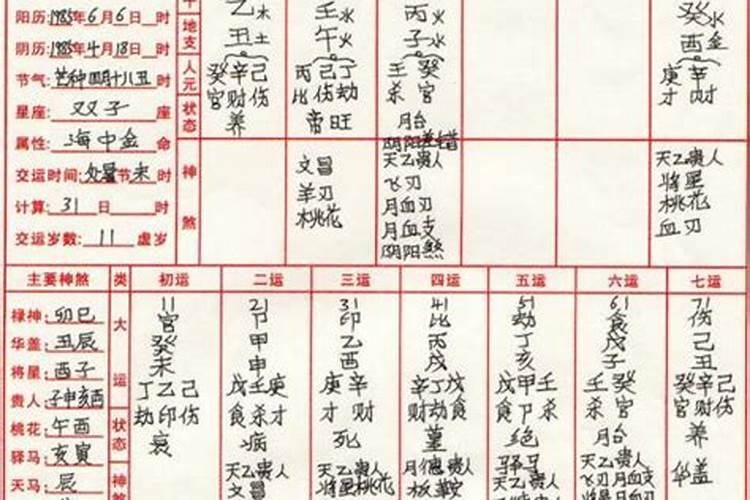 阳历:1985年6月6日 时
阴历:1985年4月18日 时
节气:芒种四月十八丑 时
星座:双子 座
属性:海中金 命
交运时间:处暑节末时
计算:31日 时
交运岁数:11 虚岁
地支
人元
状态
神煞
乙木 壬水 丙火 癸水
丑土 午火 子水 酉金
癸辛己 丙己丁 壬癸 庚辛
官财伤 比伤劫 杀官 才财
养 帝旺 月台
阴阳差错
文昌 天乙贵人 天乙贵人
羊刃 飞刃 将星
桃花 月血刃 桃花
月血支 血刃
阴阳煞
主要神煞 类 初运 二运 三运 四运 五运 六运 七运
禄神:卯巳
华盖:丑辰
将星:酉子
贵人:子申亥酉
桃花:午酉
驿马:亥寅
天马:辰
大运
状态
神煞
11 21 31 41 51 61 71
官 卩 印 比 劫 食 伤
癸 甲 乙 丙 丁 戊 己
未 申 酉 戌 亥 子 丑
丁乙己 戊壬庚 庚辛 辛丁戊 戊甲壬 壬癸 癸辛己
劫印伤 食杀才 才财 财劫食 食卩杀 杀官 官财伤
衰 病 死 墓 绝 月台 养
天乙贵人 天乙贵人 月德贵人 驿马 天乙贵人 华盖
文昌 将星桃花 板鞍 天乙贵人 将星月血支